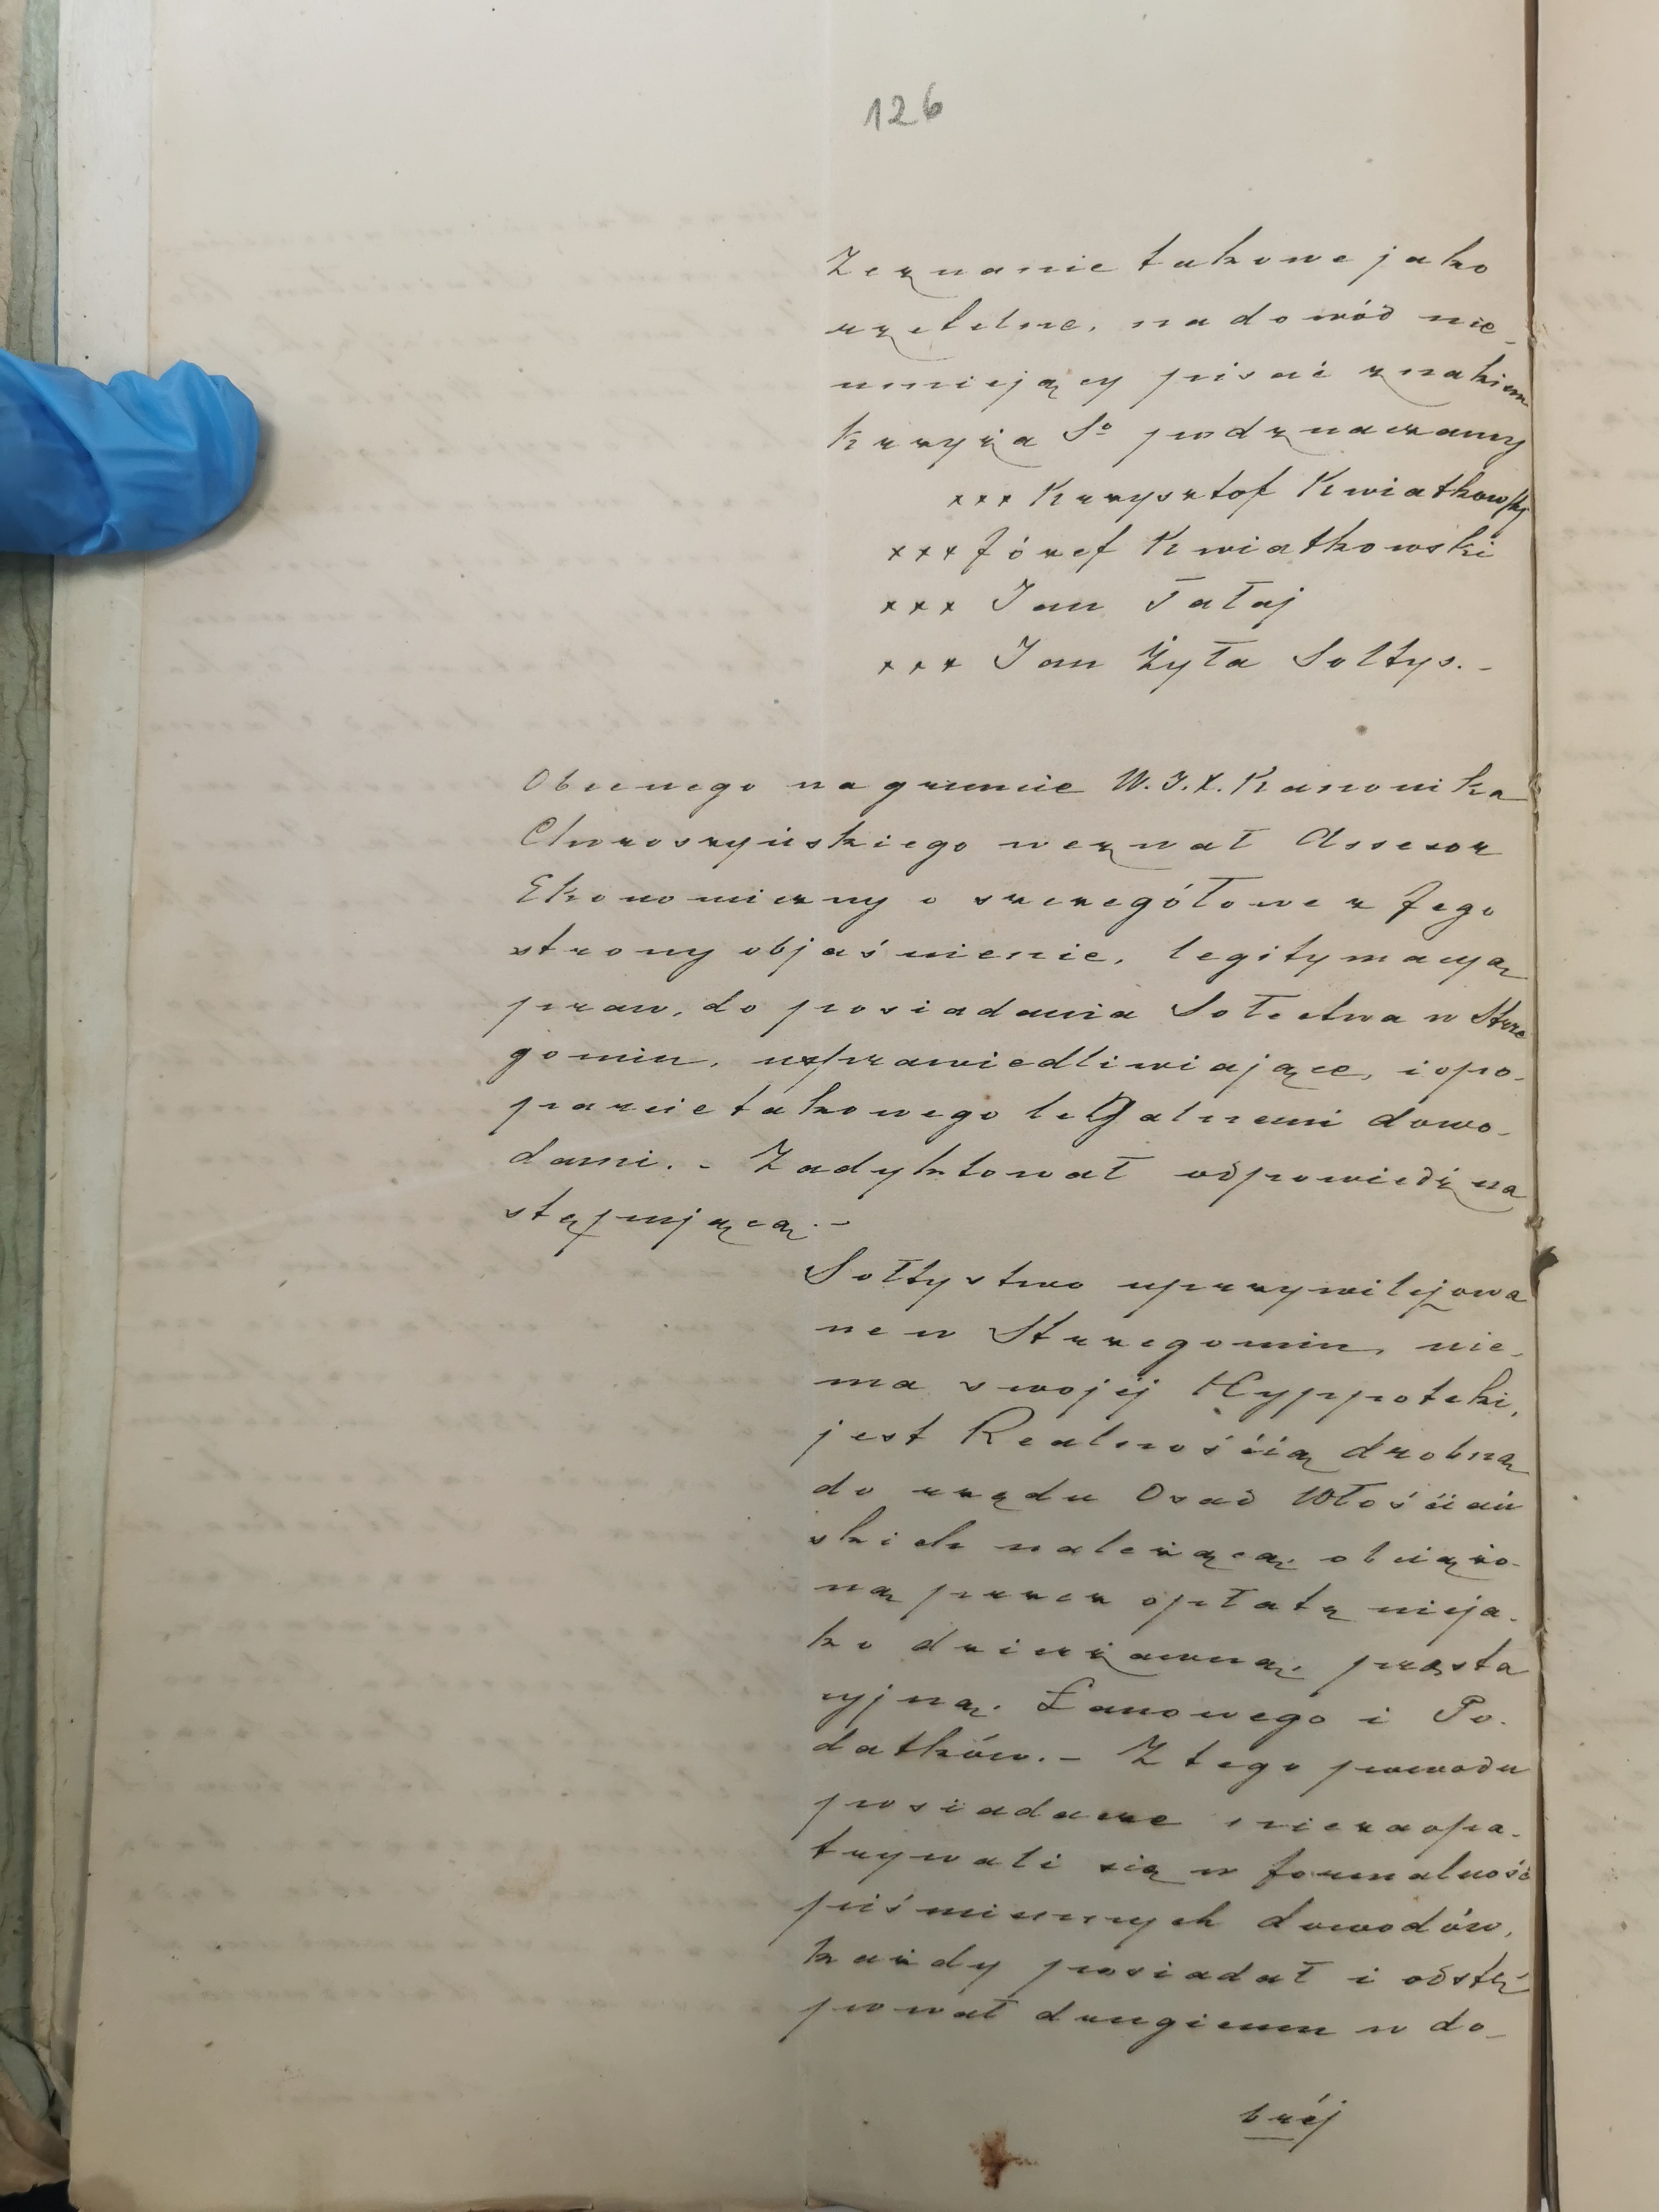 126
Zeznanie takowe jako
rzetelne, na dowód nie
umiejący pisać znakiem
Krzyża Sº podznaczamy
xxx Krzysztof Kwiatkowski
xxx Józef Kwiatkowski
xxx Jan Tałaj
xxx Jan Żyła Sołtys. -
Obecnego na gruncie W. J. X. Kanonika
Chwroszyńskiego wezwał Assesor
Ekonomiczny o szczegółowe z Jego
strony objaśnienie, legitymacyą
praw, do posiadania Sołectwa w Strze
gomiu, usprawiedliwiające, i opo-
parcie takowego leGalnemi dowo-
dami. - Zadyktował odpowiedź na
stępującą. -
Sołtystwo uprzywilejowa
ne w Strzegomiu, nie
ma swojéj Hyppoteki,
jest Realnościa drobną
do rzędu Osad Włościań
skich należącą, obciążo-
ną przez opłatę nieja-
ko dzierżawną, prest
cyjną. Łanowego i Po-
datków. - Z tego powodu
posiadacze niezaopa-
trywali się w formalność
piśmiennych dowodów,
każdy posiadał i odstę
pował drugiemu w do-
bréj